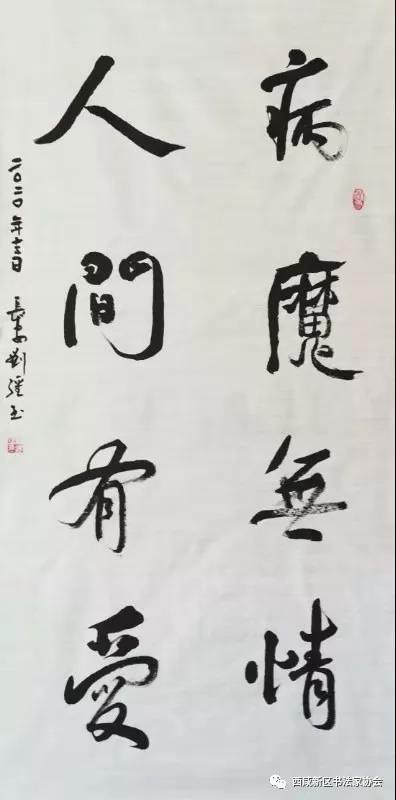 病魔無情
人間有愛
二〇二〇年
西咸新区书法家协会